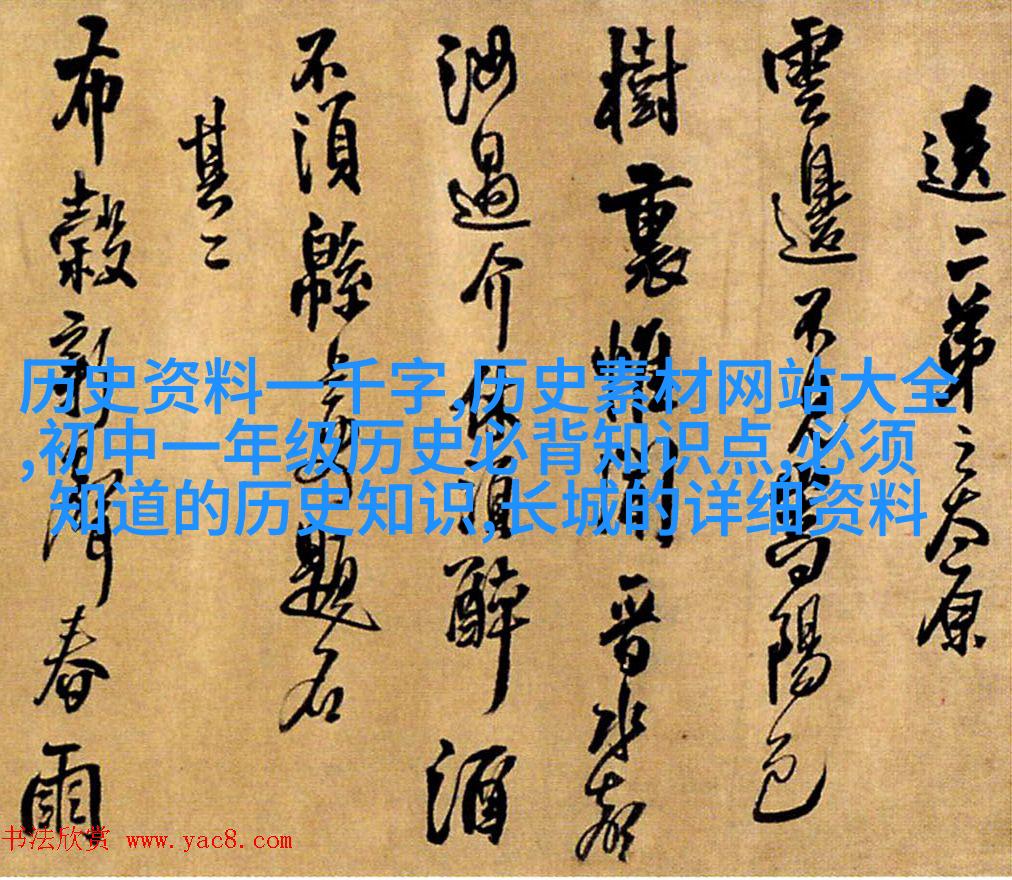 送二弟之太原
雲邊不陽
樹裏惟聞晋水
汝過介休須醉酒
不須緜上題名
其二
布穀新春雨
历史资料一千字,历史素材网站大全
,初中一年级历史必背知识点,必须
知道的历史知识,长城的详细资料
书法欣赏 www.yac8.com